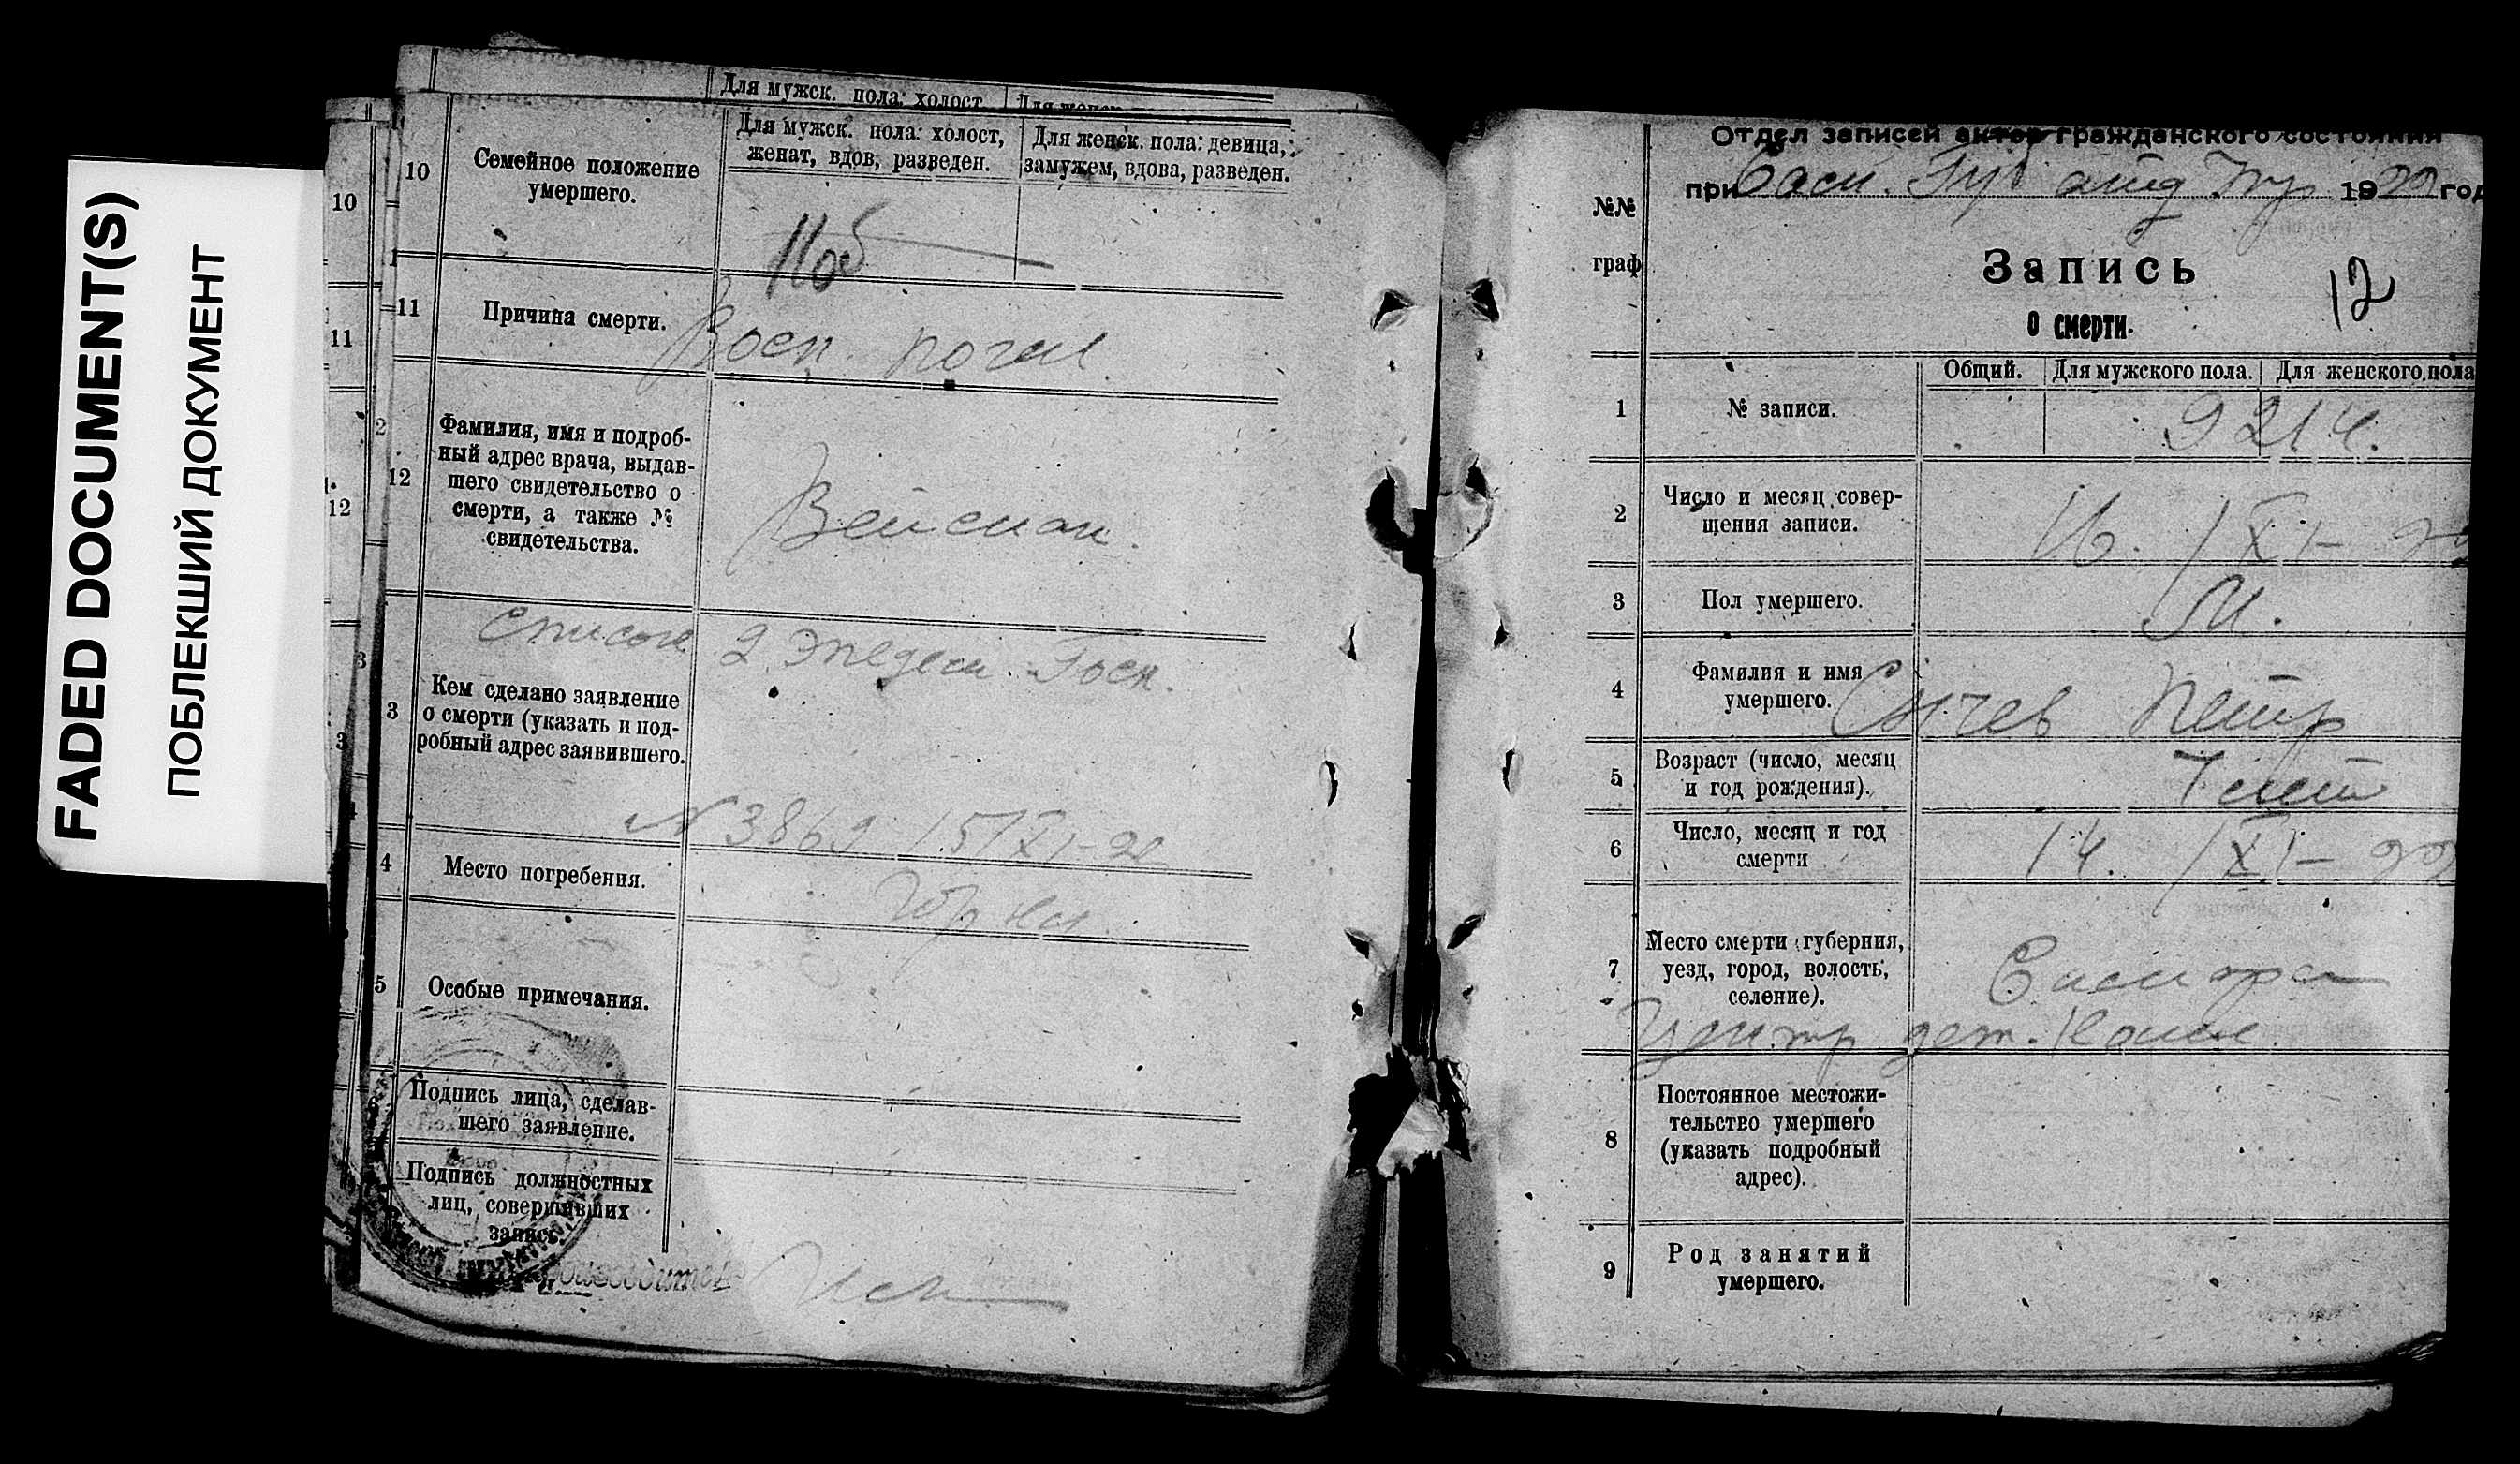 FADED DOCUMENT(S)
ПОБЛЕКШИЙ ДОКУМЕНТ
Для мужск. пола: холост.
10
11
12
10
Семейное положение
умершего.
Для мужск. пола: холост,
женат, вдов, разведен.
Для женск. пола: девица,
замужем, вдова, разведен.
11
Причина смерти.
Восп. почек.
12
Фамилия, имя и подроб-
ный адрес врача, выдав-
шего свидетельство о
смерти, а также №
свидетельства.
Вейсман.
Список 2 Эпидем. Госп.
3
Кем сделано заявление
о смерти (указать и под-
робный адрес заявившего.
N 3869 15/XI-22
4
Место погребения.
5
Особые примечания.
Подпись лица, сделав-
шего заявление.
Подпись должностных
лиц, совершивших
запись.
Отдел записей актов гражданского состояния
при 1922 год
№№
граф
Запись
о смерти.
12
Общий.
Для мужского пола.
Для женского пола
1
№ записи.
9214.
2
Число и месяц совер-
щения записи.
16. /XI- 22
3
Пол умершего.
М.
4
Фамилия и имя
умершего.
Сычев Петр
5
Возраст (число, месяц
и год рождения).
7 лет
6
Число, месяц и год
смерти
14. /XI- 22
7
Место смерти (губерния,
уезд, город, волость,
селение).
Самара
Центр дет.
8
Постоянное местожи-
тельство умершего
(указать подробный
адрес).
9
Род занятий
умершего.